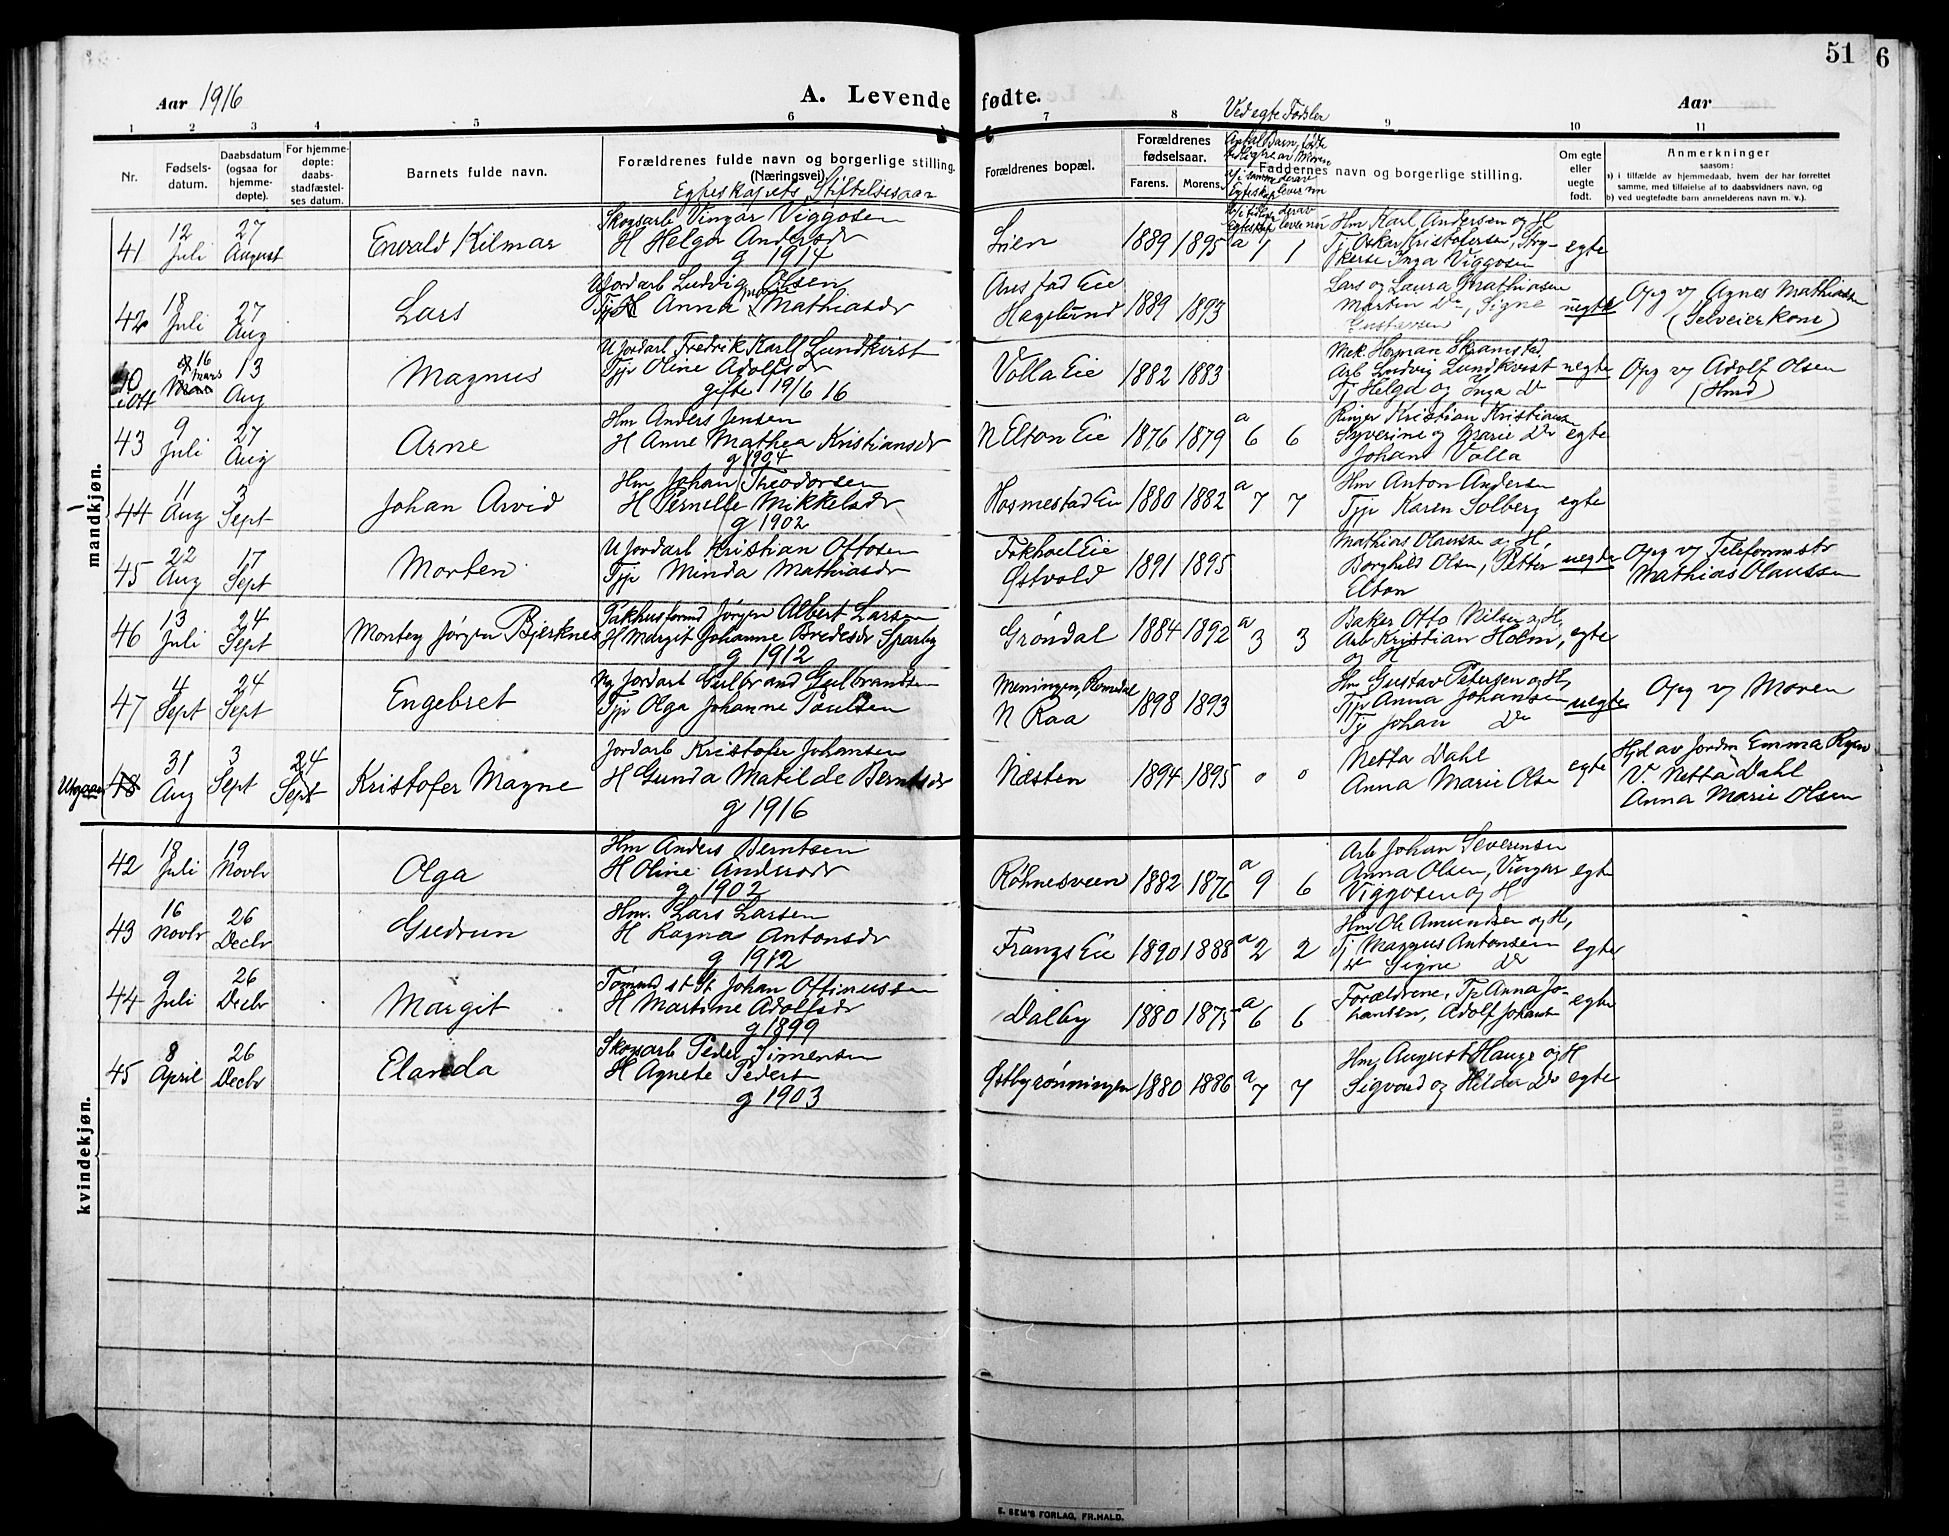 51 6
Aar 1916 A. Levende fødte. Aar
Ved egte Fødsler
1 2 3 4 5 6 7 8 9 10 11
Nr.
Fødsels-
datum.
Daabsdatum
(ogsaa for
hjemme-
døpte).
For hjemme-
døpte:
daabs-
stadfæstel-
ses datum.
Barnets fulde navn.
Forældrenes fulde navn og borgerlige stilling.
(Næringsvei).
Egteskapets Stiftelsesaar
Forældrenes bopæl.
Forældrenes
fødselsaar.
Farens. Morens.
Antal Barn, fødte
Faddernes navn og borgerlige stilling.
Om egte
eller
uegte
født.
Anmerkninger
saasom:
a) i tilfælde av hjemmedaab, hvem der har forrettet
samme, med tilføielse af to daabsvidners navn, og
b) ved uegtefødte barn anmelderens navn m. v.).
mandkjøn.
41 12 Juli 27 August Enevald Kilmar
Skovarb Vingar Viggosen
H Helga Andersdr
g 1914
Lien 1889 1895 a 1 1
Hm Karl Andersen og H
Tj Oskar Kristofersen,
Inga Viggosen
egte
42 18 Juli 27 Aug Lars
U Jordarb Ludvig Olsen
Tjp Anna Marie Mathiasdr
Austad Eie
Hagelund 1889 1893
Lars og Laura Mathiasen
Martin Do, Signe
Gustavsen
uegte
Opg v Agnes Mathiasen
(Selveierkone)
40 i Ott 16 mars 13 Aug Magnus
U Jordarb Fredrik Karl Lundkvist
Tjp Oline Adolfsdr
gifte 19/6 16
Volla Eie 1882 1883
Mek. Herman Skramstad
Arb Ludvig Lundkvist
Tj Helga og Inga Do
uegte
Opg v Adolf Olsen
(Hmd)
43 9 Juli 27 Aug Arne
Hm Anders Jensen
H Anne Mathea Kristiansdr
g 1904
N Elton Eie 1876 1879 a 6 6
Ringer Kristian Kristiansen
Syverine og Marie Do
Johan Volla
egte
44 11 Aug 3 Sept Johan Arvid
Hm Johan Theodorsen
H Pernelle Mikkelsdr
g 1902
Hosmestad Eie 1880 1882 a 7 7
Hm Anton Andersen
Tjp Karen Solberg
egte
45 22 Aug 17 Sept Morten
U Jordarb Kristian Ottosen
Tjp Minda Mathiasdr
Frkhoel Eie
Østvold 1891 1895
Mathias Olaussen og H,
Borghild Olsen, Petter
Elton
uegte
Opg v Telefonmstr
Mathias Olaussen
46 13 Juli 24 Sept Jørgen Bjerknes
Pakhusformd Jørgen Albert Larsen
H Margit Johanne Bredesdr Sparby
g 1912
Grøndal 1884 1892 a 3 3
Baker Otto Nilsen og H,
Arb Kristian Holm,
og H
egte
47 4 Sept 24 Sept Engebret
Ug Jordarb Gulbrand Gulbrandsen
Tjp Olga Johanne Paulsen
Meningen, Romedal
N Raa 1898 1893
Hm Gustav Petersen og H,
Tjp Anna Johansen
Tj Johan Do
uegte
Opg v Moren
Utgaar 48 31 Aug 3 Sept 24 Sept Kristofer Magne
Jordarb Kristofer Johansen
H Gunda Matilde Berntsdr
g 1916
Næsten 1894 1895 0 0
Netta Dahl
Anna Marie Olsen
egte
Hjd av Jordm Emma Ryen
V. Netta Dahl
Anna Marie Olsen
kvindekjøn.
42 18 Juli 19 Novbr Olga
Hm Anders Berntsen
H Oline Andersdr
g 1902
Røhnesveen 1882 1876 a 9 6
Arb Johan Severinsen
Anna Olsen, Vingar
Viggosen og H
egte
43 16 Novbr 26 Decbr Gudrun
Hm. Lars Larsen
H Ragna Antonsdr
g 1912
Frangs Eie 1890 1888 a 2 2
Hm Ole Amundsen og H,
Tj Magnus Antonsen
Do Signe Do
egte
44 9 Juli 26 Decbr Margit
Johan Ottinussen
H Martine Adolfsdr
g 1899
Dalby 1880 1875 a 6 6
Forældrene, Tjp Anna Jo-
hansen, Adolf Johansen
egte
45 8 April 26 Decbr Elanda
Skovarb Peder Simensen
H Agnete Pedersd
g 1903
Østbyrønningen 1880 1886 a 7 7
Hm August Hauge og H
Sigvard og Hilda Do
egte
E. SEM'S FORLAG, FR.HALD.